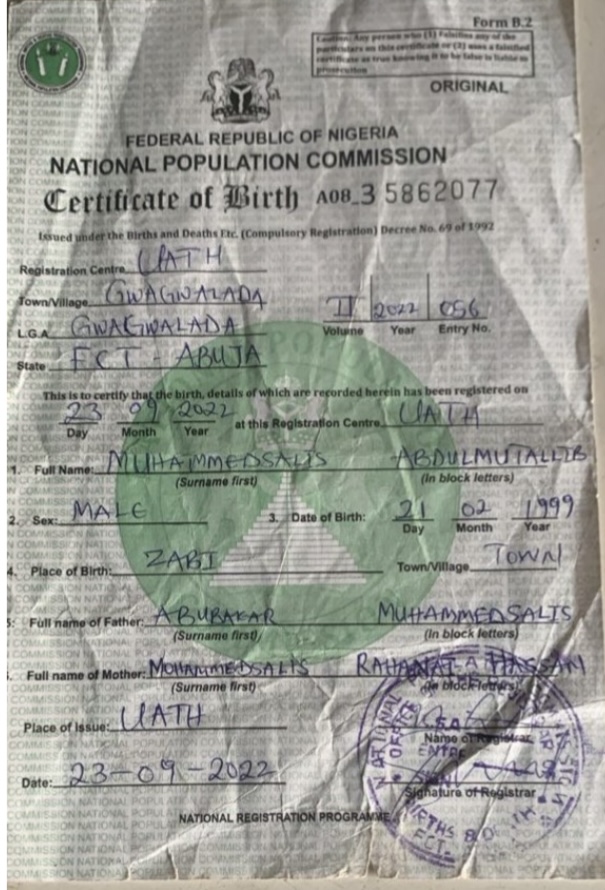 Form B.2
Caution: Any person who (1) falsifies any of the
particulars on this certificate or (2) uses a falsified
certificate as true knowing it to be false is liable to
prosecution
ORIGINAL
FEDERAL REPUBLIC OF NIGERIA
NATIONAL POPULATION COMMISSION
Certificate of Birth A08_3 5862077
Issued under the Births and Deaths Etc. (Compulsory Registration) Decree No. 69 of 1992
Registration Centre UATH
Town/Village GWAGWALADA
II 2022 056
L.G.A. GWAGWALADA
Volume Year Entry No.
State FCT - ABUJA
This is to certify that the birth, details of which are recorded herein has been registered on
23 09 2022 at this Registration Centre UATH
Day Month Year
1. Full Name: MUHAMMEDSALIS ABDULMUTALLIB
(Surname first) (In block letters)
2. Sex: MALE 3. Date of Birth: 21 02 1999
Day Month Year
4. Place of Birth: ZABI Town/Village TOWN
5: Full name of Father: ABUBAKAR MUHAMMEDSALIS
(Surname first) (In block letters)
Full name of Mother: MUHAMMEDSALIS RAHANATA HASSAN
(Surname first) (In block letters)
Place of Issue: UATH
Name of Registrar
Date: 23-09-2022
Signature of Registrar
NATIONAL REGISTRATION PROGRAMME